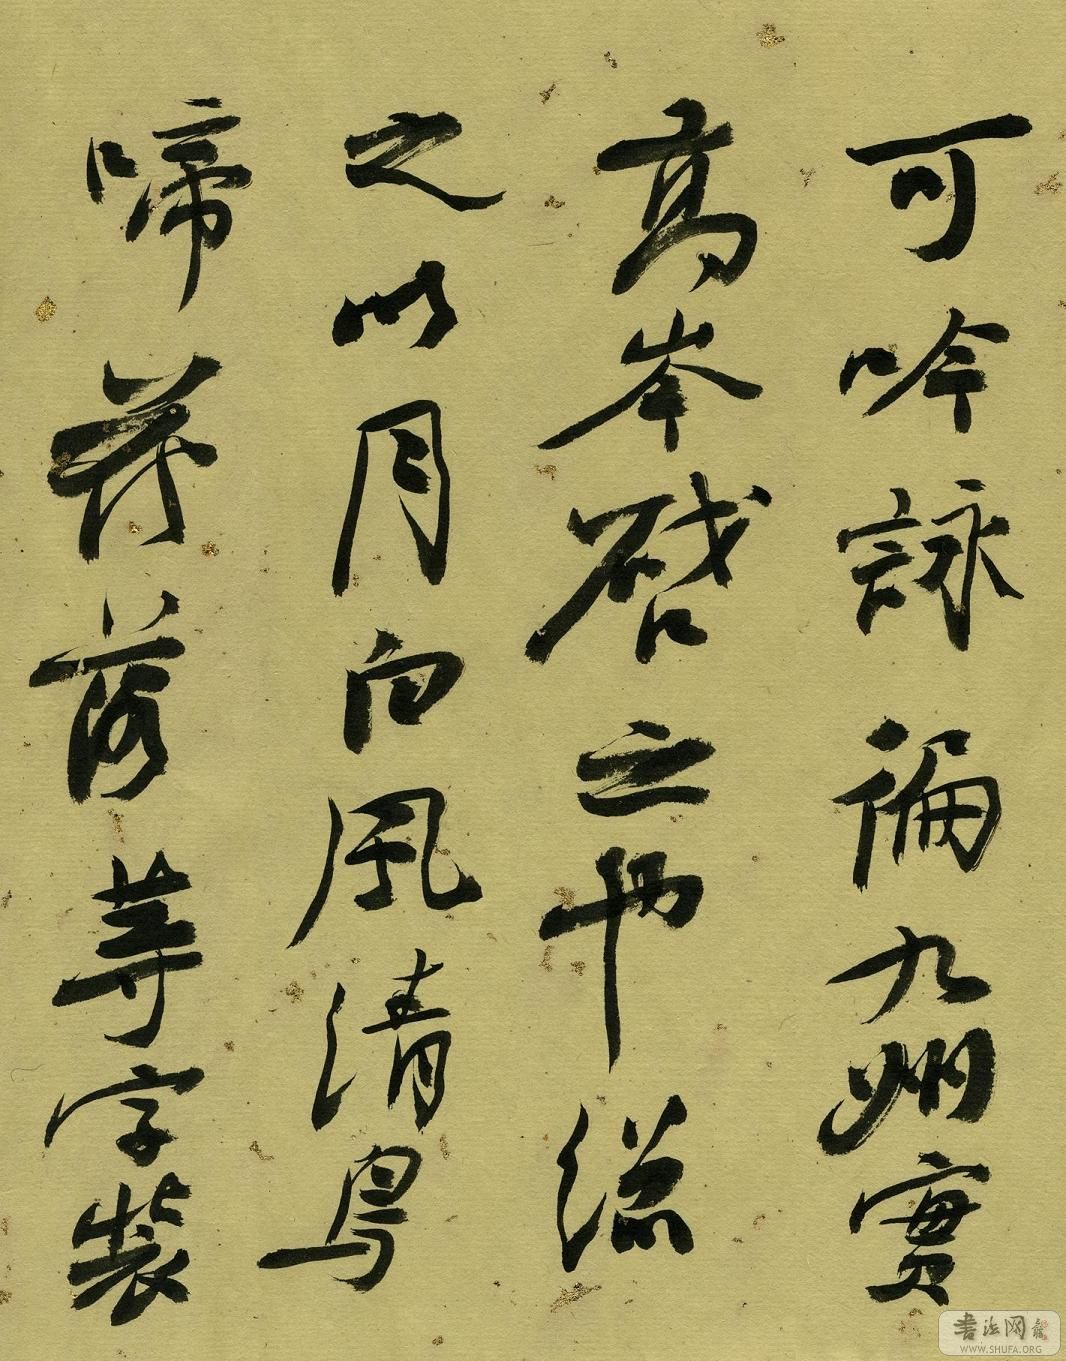 可吟詠徧九州實
高岑啓之也總
之以月白風清鳥
啼花落等字裝
書法网
WWW.SHUFA.ORG